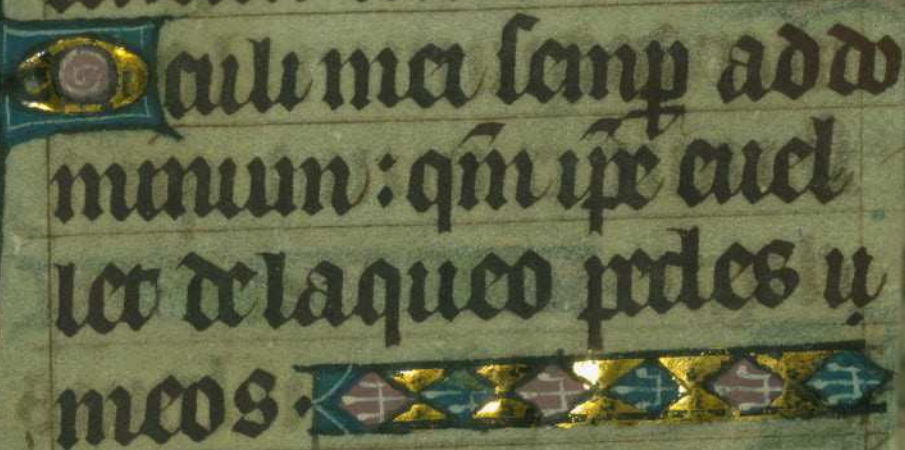 Oculi mei semꝑ ad do
minum : qm̄ ip̄e euel
let de laqueo pedes ụ
meos·